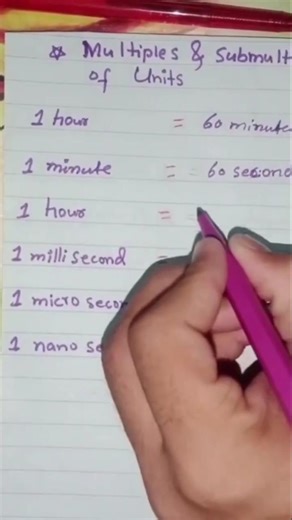 ☆ Multiples & Submult
of Units
1 hour = 60 minute
1 minute = 60 second
1 hour =
1 milli second =
1 micro secon
1 nano se